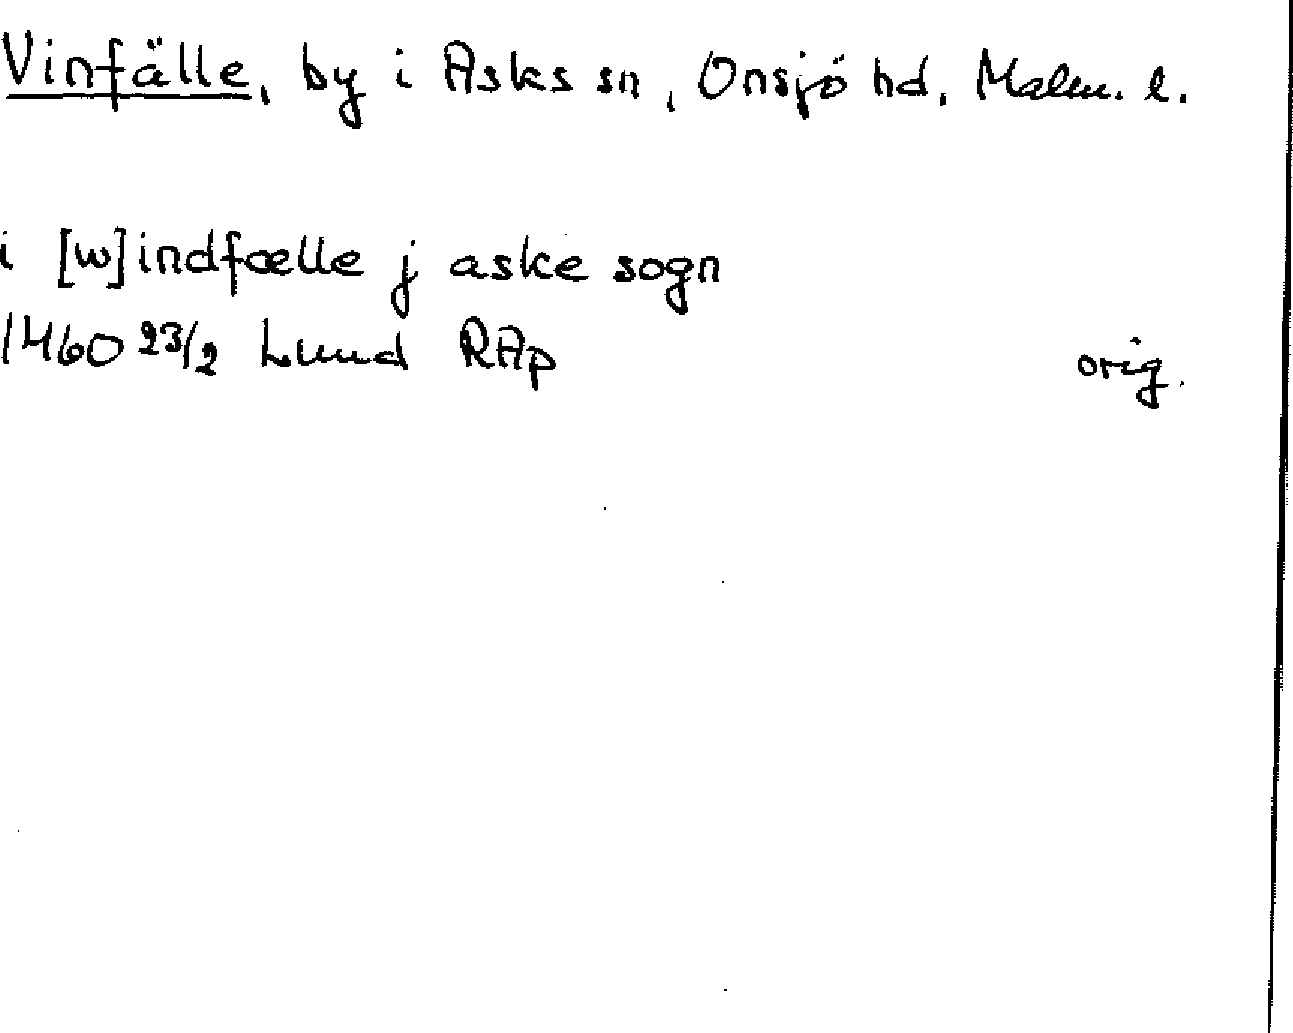 Vinfälle, by i Asks sn, Onsjö hd, Malm. l.
i [w]indfælle j aske sogn
1460 23/2 Lund RAp
orig.